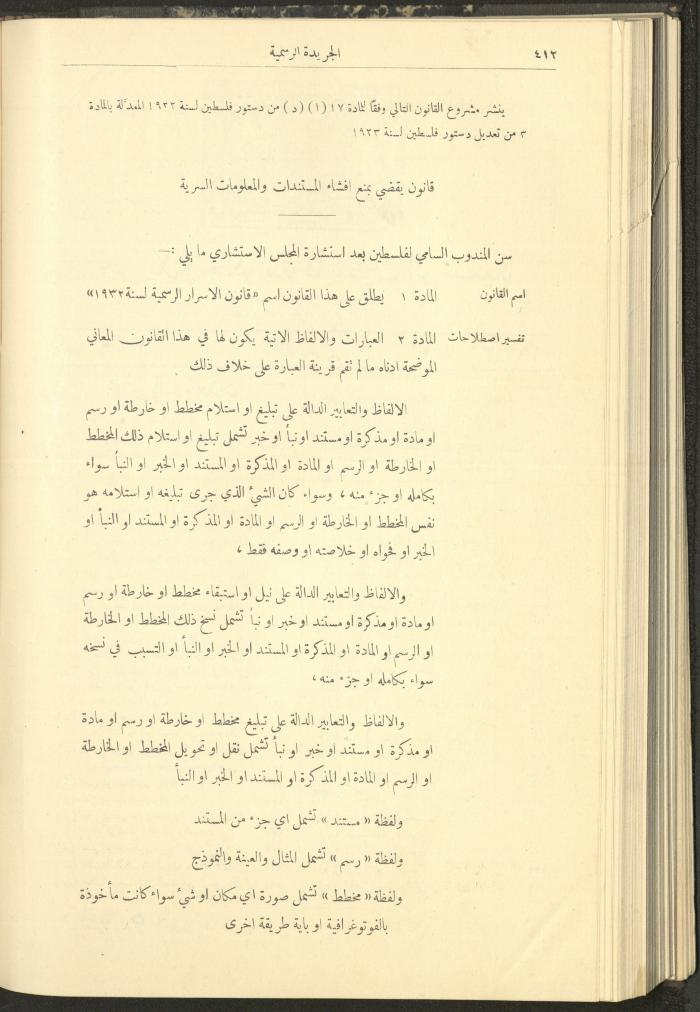 ٤١٢
الجريدة الرسمية
ينشر مشروع القانون التالي وفقًا للمادة ١٧ (١) (د) من دستور فلسطين لسنة ١٩٢٢ المعدّلة بالمادة
٣ من تعديل دستور فلسطين لسنة ١٩٢٣
قانون يقضي بمنع افشاء المستندات والمعلومات السرية
سن المندوب السامي لفلسطين بعد استشارة المجلس الاستشاري ما يلي :—
اسم القانون
المادة ١ يطلق على هذا القانون اسم «قانون الاسرار الرسمية لسنة ١٩٣٢»
تفسير اصطلاحات
المادة ٢ العبارات والالفاظ الاتية يكون لها في هذا القانون المعاني
الموضحة ادناه ما لم تقم قرينة العبارة على خلاف ذلك
الالفاظ والتعابير الدالة على تبليغ او استلام مخطط او خارطة او رسم
او مادة او مذكرة او مستند او نبأ او خبر تشمل تبليغ او استلام ذلك المخطط
او الخارطة او الرسم او المادة او المذكرة او المستند او الخبر او النبأ سواء
بكامله او جزء منه ، وسواء كان الشيء الذي جرى تبليغه او استلامه هو
نفس المخطط او الخارطة او الرسم او المادة او المذكرة او المستند او النبأ او
الخبر او فحواه او خلاصته او وصفه فقط ،
والالفاظ والتعابير الدالة على نيل او استبقاء مخطط او خارطة او رسم
او مادة او مذكرة او مستند او خبر او نبأ تشمل نسخ ذلك المخطط او الخارطة
او الرسم او المادة او المذكرة او المستند او الخبر او النبأ او التسبب في نسخه
سواء بكامله او جزء منه ،
والالفاظ والتعابير الدالة على تبليغ مخطط او خارطة او رسم او مادة
او مذكرة او مستند او خبر او نبأ تشمل نقل او تحويل المخطط او الخارطة
او الرسم او المادة او المذكرة او المستند او الخبر او النبأ
ولفظة « مستند » تشمل اي جزء من المستند
ولفظة « رسم » تشمل المثال والعينة والنموذج
ولفظة « مخطط » تشمل صورة اي مكان او شيء سواء كانت مأخوذة
بالفوتوغرافية او باية طريقة اخرى